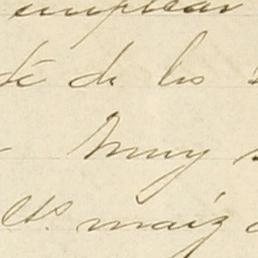 emplear
té de los
Muy
Cts. maiz